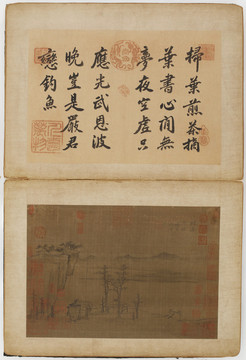 掃葉煎茶摘
葉書心閒無
夢夜窓虛只
應光武恩波
晚豈是嚴君
戀釣魚